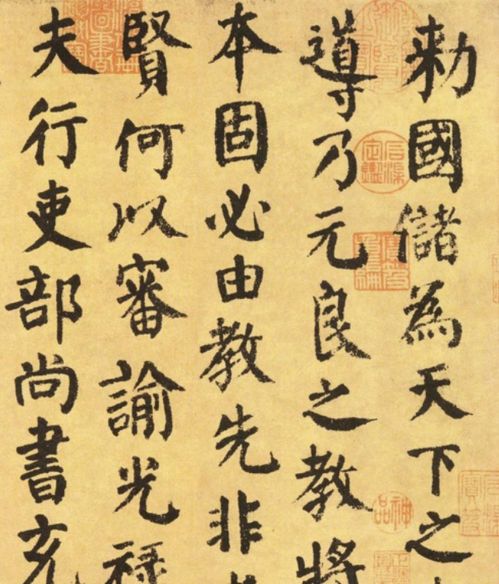 勅國儲為天下之
導乃元良之教將
本固必由教先非
賢何以審諭光祿
夫行吏部尚書充
神品